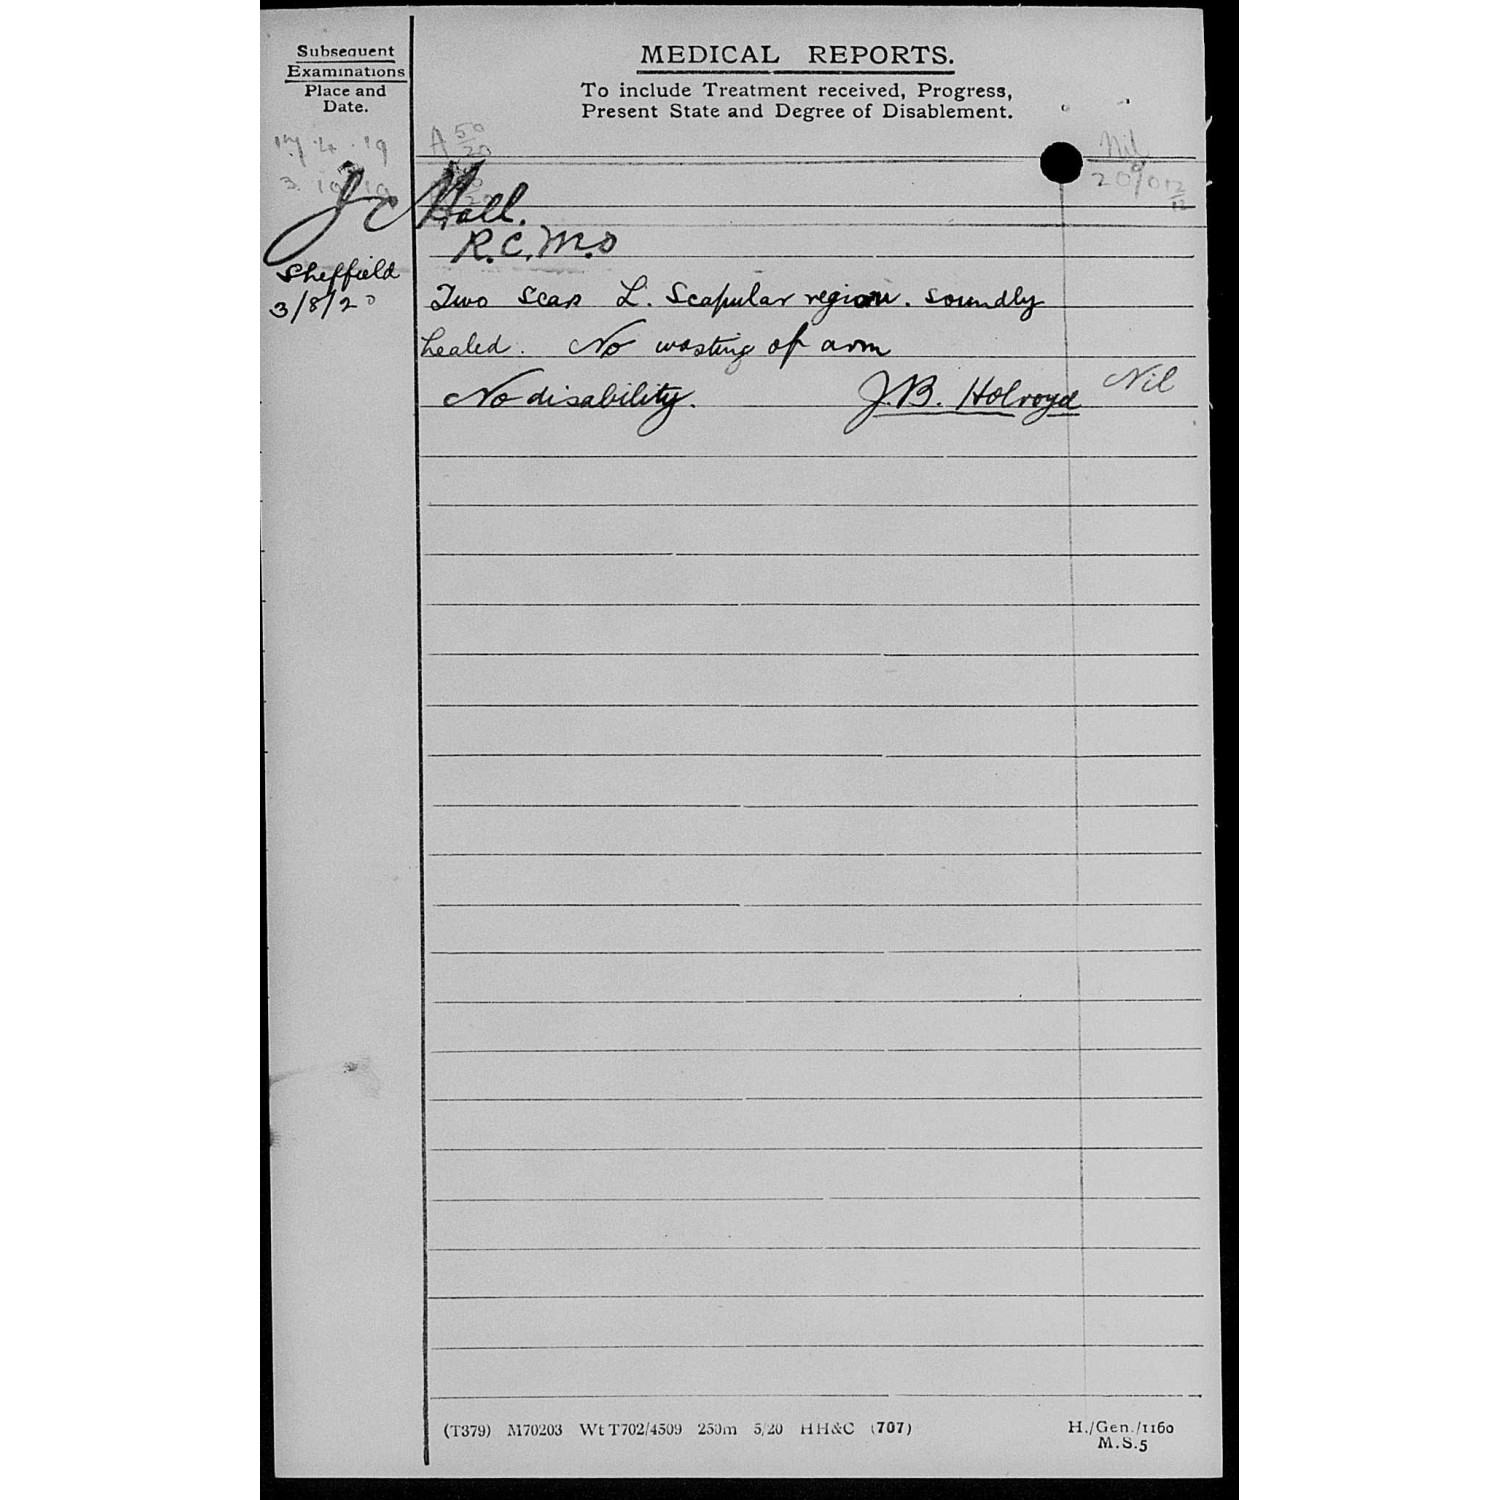 Subsequent
Examinations
Place and
Date.
MEDICAL REPORTS.
To include Treatment received, Progress,
Present State and Degree of Disablement.
A 50/20
Nil
3. 10 19
20%
J C Hall.
R.C.M.O
Sheffield
3/8/20
Two Scars L. Scapular region. soundly
healed. No wasting of arm
No disability. J.B. Holroyd Nil
(T379) M70203 Wt T702/4509 250m 5/20 HH&C (707)
H./Gen./1160
M.S.5